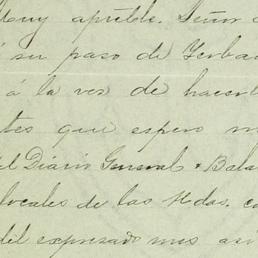 Muy apreble. Señor
su paso de Yerba
á la vez de hacer
que espero
el Diario General & Bala
locales de las Hdas. ca
del expresado mes asi